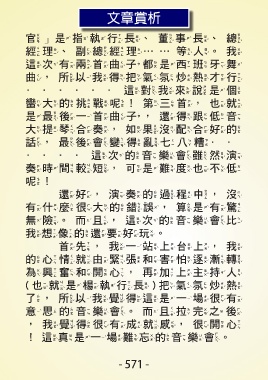 文章賞析
官」是指執行長、董事長、總
經理、副總經理……等人。我
這次有兩首曲子都是西班牙舞
曲，所以我得把氣氛炒熱才行
．．．．．．這對我來說是個
蠻大的挑戰呢！第三首，也就
是最後一首曲子，還得跟低音
大提琴合奏，如果沒配合好的
話，最後會變得亂七八糟．．
．．．．這次的音樂會雖然演
奏時間較短，可是難度也不低
呢！
還好，演奏的過程中，沒
有什麼很大的錯誤，算是有驚
無險。而且，這次的音樂會比
我想像的還要好玩。
首先，我一站上台上，我
的心情就由緊張和害怕逐漸轉
為興奮和開心，再加上主持人
(也就是楊執行長)把氣氛炒熱
了，所以我覺得這是一場很有
意思的音樂會。而且拉完之後
，我覺得很有成就感，很開心
！這真是一場難忘的音樂會。
- 571 -